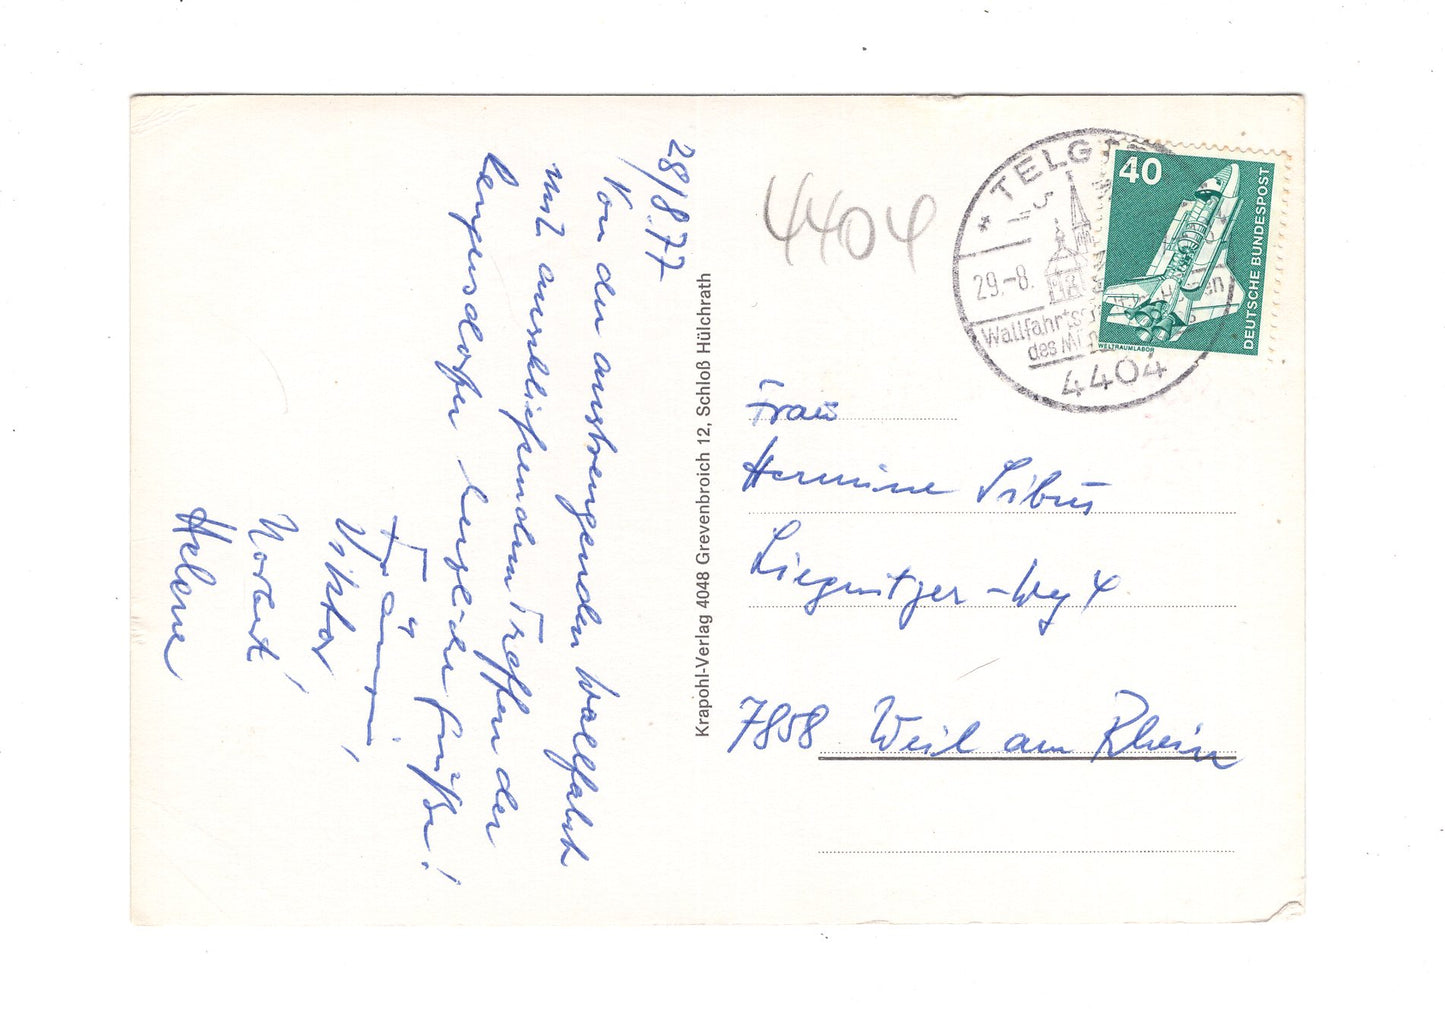 28/8.77
Von der anstrengenden Wallfahrt
mit anschließenden Treffen der
Lengensdorfer herzliche Grüße!
Fränzi,
Viktor
Norbert
Helene
Krapohl-Verlag 4048 Grevenbroich 12, Schloß Hülchrath
4404
* TELG
29.-8.
Wallfahrts
des M
4404
40
DEUTSCHE BUNDESPOST
WELTRAUMLABOR
Frau
Hermine Sibus
Liegnitzer-Weg 4
7858 Weil am Rhein